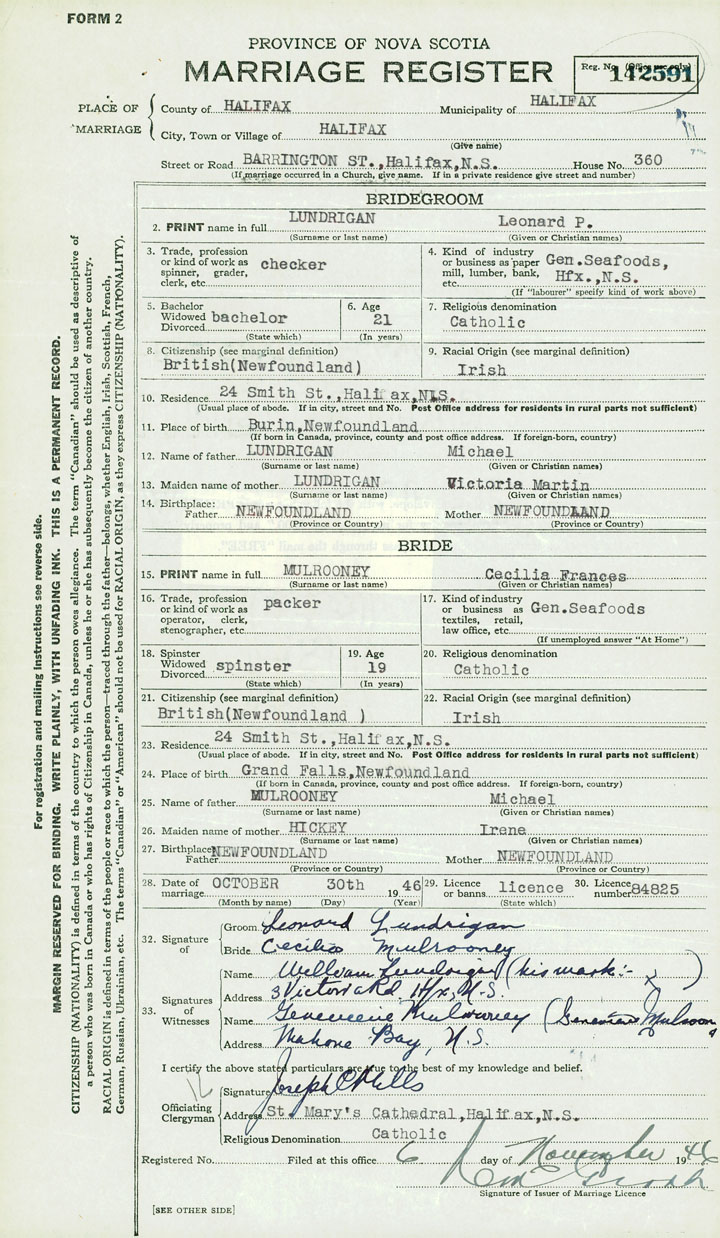 FORM 2
PROVINCE OF NOVA SCOTIA
MARRIAGE REGISTER
Reg. No. (Office use only) 142591
PLACE OF MARRIAGE
County of HALIFAX Municipality of HALIFAX
City, Town or Village of HALIFAX
(Give name)
Street or Road BARRINGTON ST.,Halifax,N.S. House No. 360
(If marriage occurred in a Church, give name. If in a private residence give street and number)
BRIDEGROOM
2. PRINT name in full LUNDRIGAN Leonard P.
(Surname or last name) (Given or Christian names)
3. Trade, profession or kind of work as spinner, grader, clerk, etc. checker
4. Kind of industry or business as paper mill, lumber, bank, etc. Gen.Seafoods, Hfx.,N.S.
(If "labourer" specify kind of work above)
5. Bachelor Widowed Divorced bachelor
(State which)
6. Age 21
(In years)
7. Religious denomination
Catholic
8. Citizenship (see marginal definition)
British(Newfoundland)
9. Racial Origin (see marginal definition)
Irish
10. Residence 24 Smith St.,Halifax,N.S.
(Usual place of abode. If in city, street and No. Post Office address for residents in rural parts not sufficient)
11. Place of birth Burin,Newfoundland
(If born in Canada, province, county and post office address. If foreign-born, country)
12. Name of father LUNDRIGAN Michael
(Surname or last name) (Given or Christian names)
13. Maiden name of mother LUNDRIGAN Victoria Martin
(Surname or last name) (Given or Christian names)
14. Birthplace: Father NEWFOUNDLAND Mother NEWFOUNDLAND
(Province or Country) (Province or Country)
BRIDE
15. PRINT name in full MULROONEY Cecilia Frances
(Surname or last name) (Given or Christian names)
16. Trade, profession or kind of work as operator, clerk, stenographer, etc. packer
17. Kind of industry or business as textiles, retail, law office, etc. Gen.Seafoods
(If unemployed answer "At Home")
18. Spinster Widowed Divorced spinster
(State which)
19. Age 19
(In years)
20. Religious denomination
Catholic
21. Citizenship (see marginal definition)
British(Newfoundland )
22. Racial Origin (see marginal definition)
Irish
23. Residence 24 Smith St.,Halifax,N.S.
(Usual place of abode. If in city, street and No. Post Office address for residents in rural parts not sufficient)
24. Place of birth Grand Falls,Newfoundland
(If born in Canada, province, county and post office address. If foreign-born, country)
25. Name of father MULROONEY Michael
(Surname or last name) (Given or Christian names)
26. Maiden name of mother HICKEY Irene
(Surname or last name) (Given or Christian names)
27. Birthplace Father NEWFOUNDLAND Mother NEWFOUNDLAND
(Province or Country) (Province or Country)
28. Date of marriage OCTOBER 30th 1946
(Month by name) (Day) (Year)
29. Licence or banns licence
(State which)
30. Licence number 84825
32. Signature of
Groom Leonard Lundrigan
Bride Cecilia Mulrooney
33. Signatures of Witnesses
Name William Lundrigan (his mark:- X )
Address 3 Victoria Rd Hfx, N.S.
Name Genevieve Mulrooney (Genevieve
Address Mahone Bay, N.S.
I certify the above stated particulars are true to the best of my knowledge and belief.
12
Officiating Clergyman
Signature Joseph C Mills
Address St. Mary's Cathedral,Halifax,N.S.
Religious Denomination Catholic
Registered No. Filed at this office 6 day of November 1946
Signature of Issuer of Marriage Licence
[SEE OTHER SIDE]
For registration and mailing instructions see reverse side.
MARGIN RESERVED FOR BINDING. WRITE PLAINLY, WITH UNFADING INK. THIS IS A PERMANENT RECORD.
CITIZENSHIP (NATIONALITY) is defined in terms of the country to which the person owes allegiance. The term "Canadian" should be used as descriptive of
a person who was born in Canada or who has rights of Citizenship in Canada, unless he or she has subsequently become the citizen of another country.
RACIAL ORIGIN is defined in terms of the people or race to which the person—traced through the father—belongs, whether English, Irish, Scottish, French,
German, Russian, Ukrainian, etc. The terms "Canadian" or "American" should not be used for RACIAL ORIGIN, as they express CITIZENSHIP (NATIONALITY).